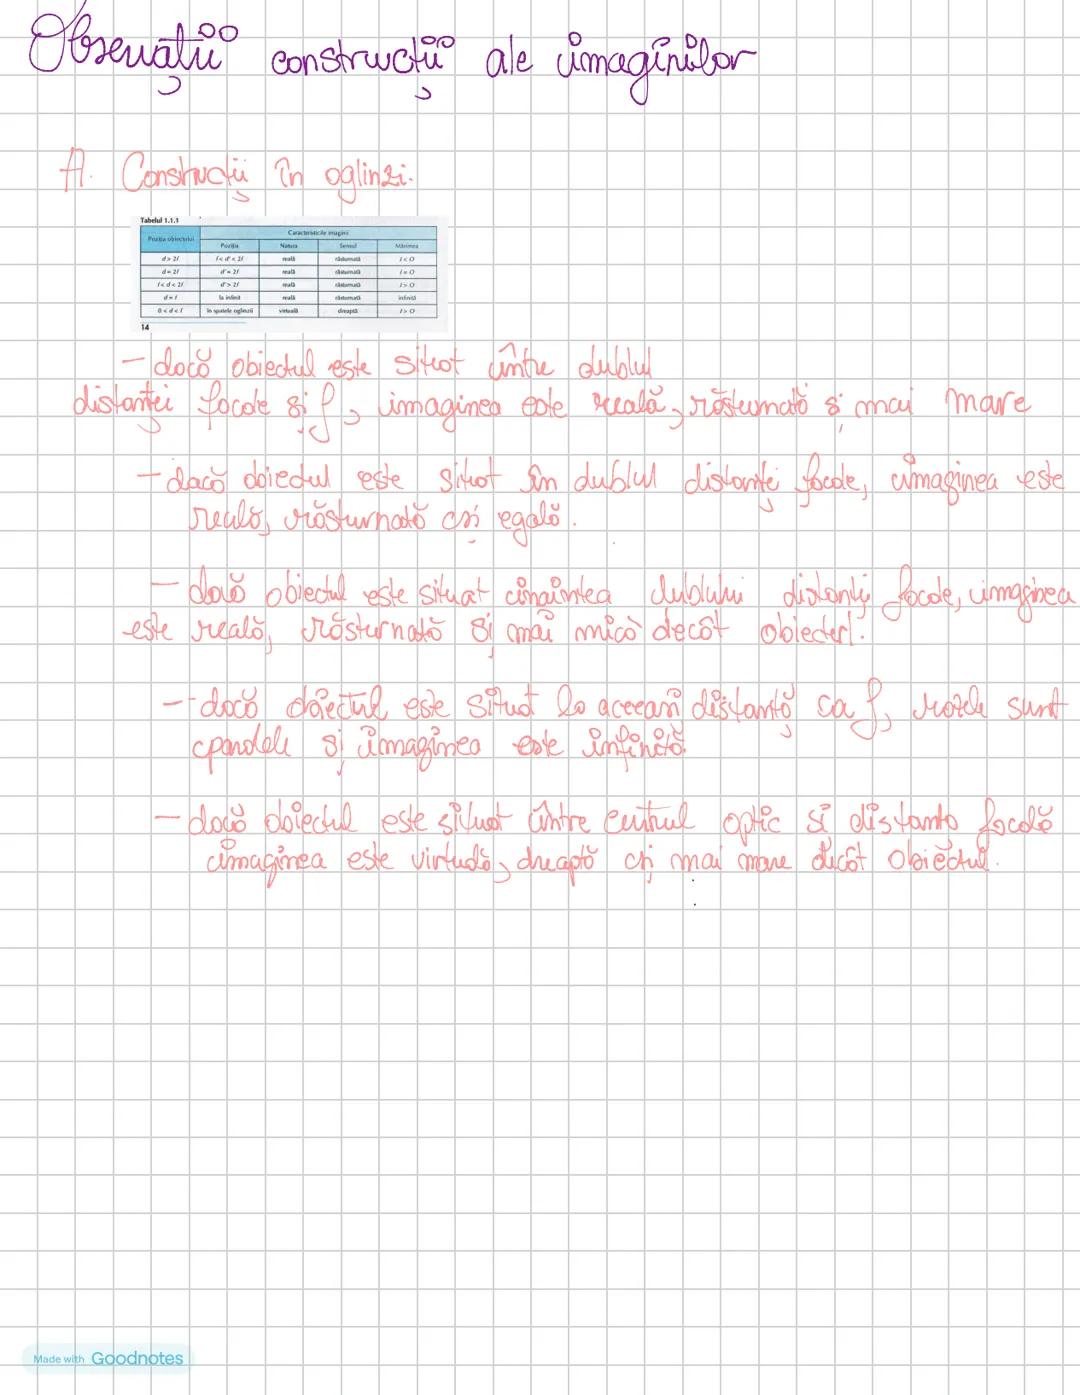 Observații construcții ale imaginilor
A. Construcții în oglinzi.
Tabelul 1.1.1
Poziția obiectului
Caracteristicile imaginii
Poziția Natura Sensul Mărimea
d > 2f f < d' < 2f reală răsturnată I < O
d = 2f d' = 2f reală răsturnată I = O
f < d < 2f d' > 2f reală răsturnată I > O
d = f la infinit reală răsturnată infinită
0 < d < f în spatele oglinzii virtuală dreaptă I > O
14
- dacă obiectul este situat între dublul
distanței focale și f, imaginea este reală, răsturnată și mai mare
- dacă obiectul este situat în dublul distanței focale, imaginea este
reală, răsturnată și egală.
- dacă obiectul este situat înaintea dublului distanței focale, imaginea
este reală, răsturnată și mai mică decât obiectul.
- dacă obiectul este situat la aceeași distanță ca f, razele sunt
și imaginea este infinită.
- dacă obiectul este situat între centrul optic și distanța focală
imaginea este virtuală, dreaptă și mai mare decât obiectul.
Made with Goodnotes